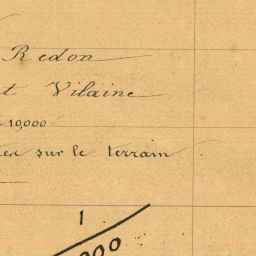 Redon
t Vilaine
10,000
sur le terrain
1
000